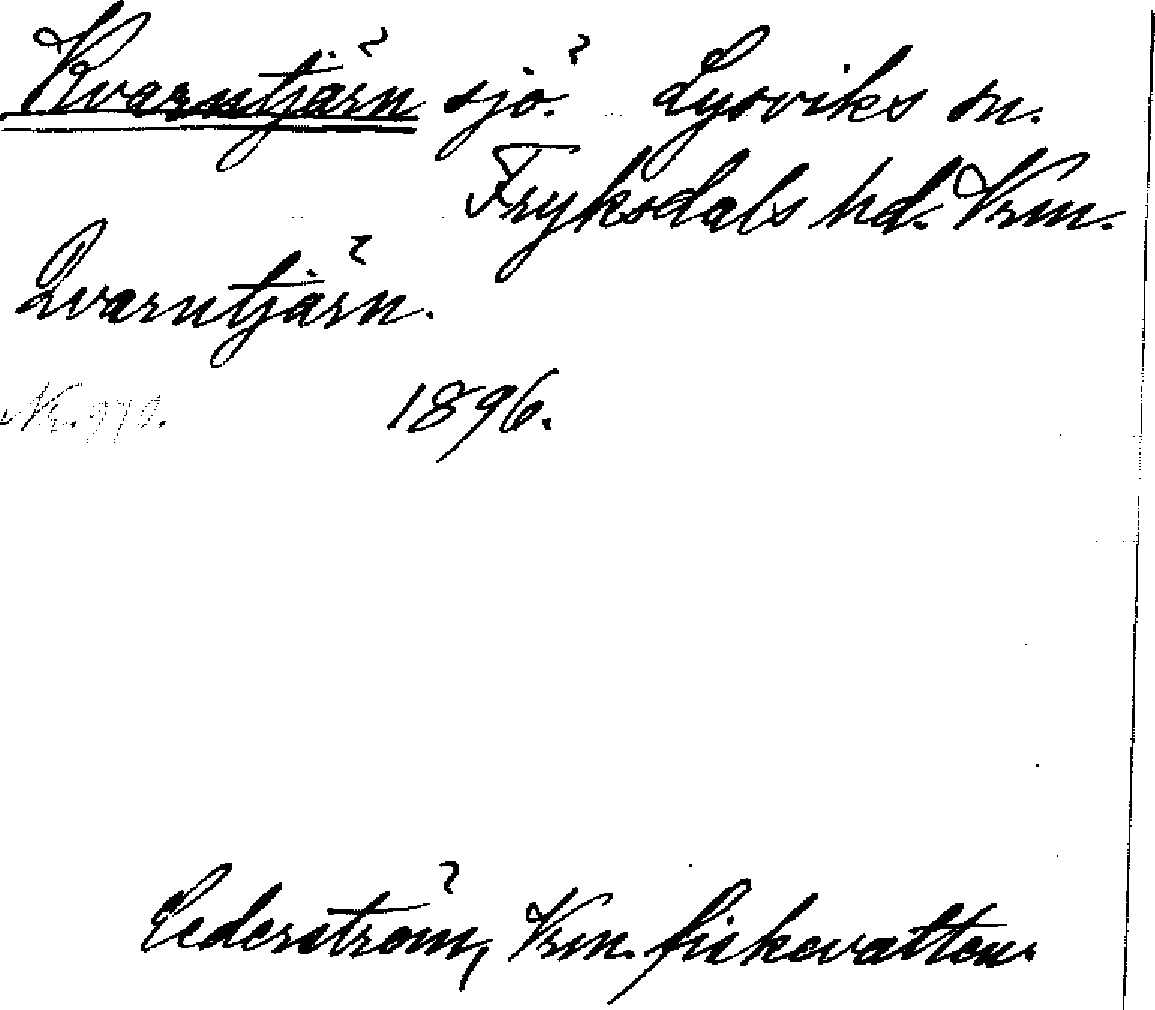 Kvarntjärn sjö. Lysviks sn.
Fryksdals hd. Vrm.
Qvarntjärn.
1896.
Cederström, Vrm. fiskevatten.